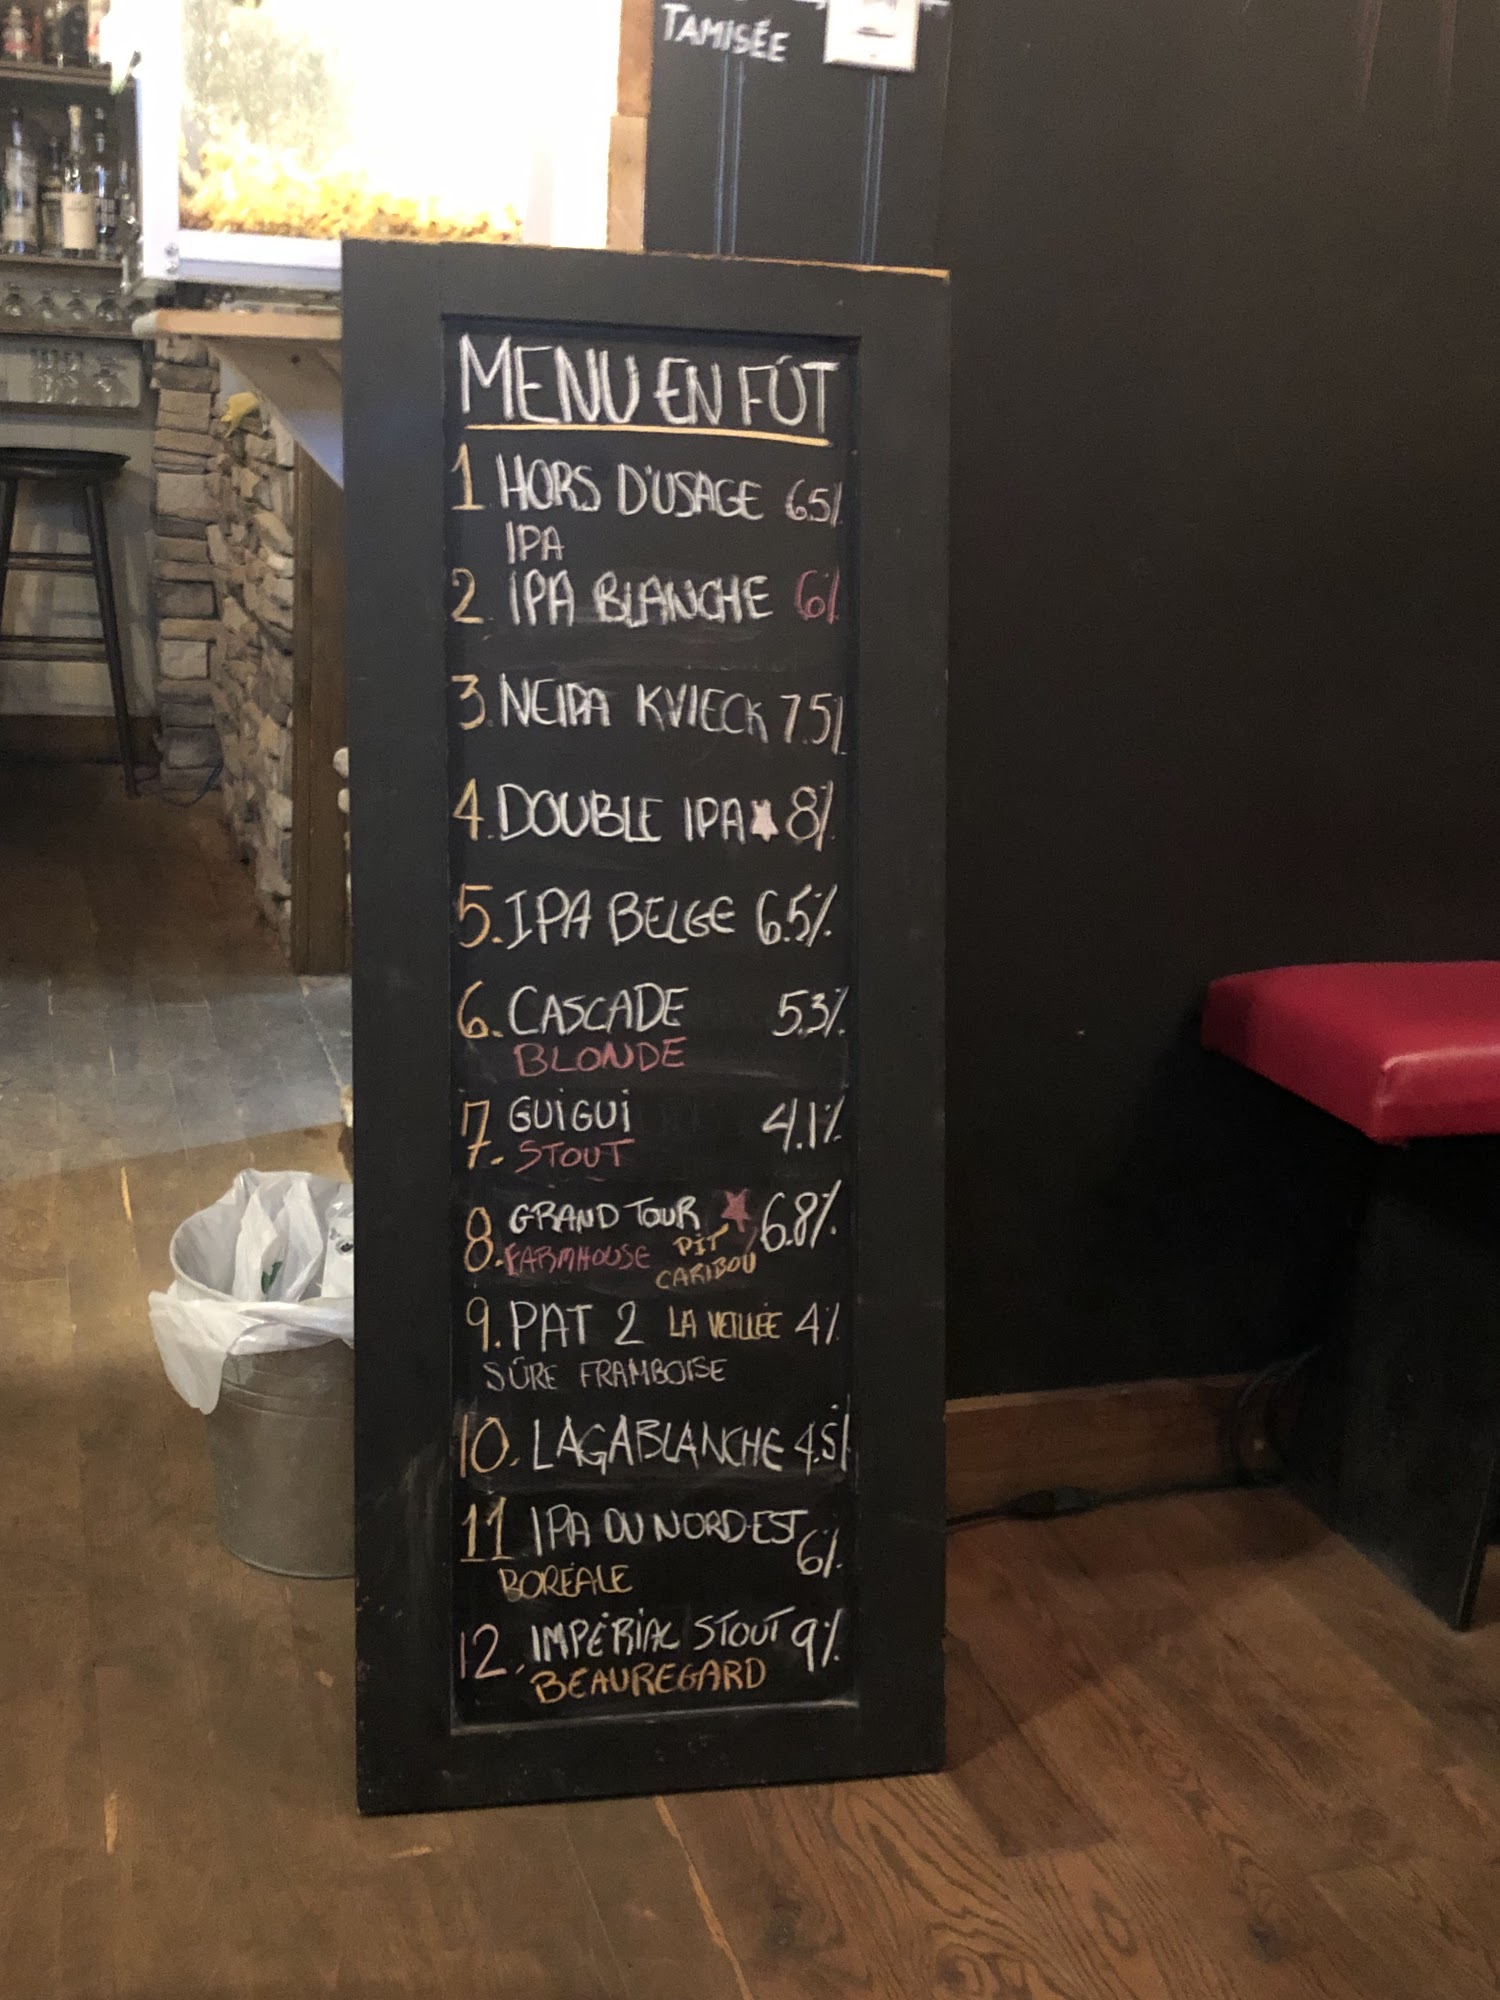 TAMISÉE
MENU EN FÛT
1 HORS D'USAGE 6.5%
IPA
2. IPA BLANCHE 6%
3. NEIPA KVIECK 7.5%
4. DOUBLE IPA 8%
5. IPA BELGE 6.5%
6. CASCADE 5.3%
BLONDE
7. GUiGUi 4.1%
STOUT
8. GRAND TOUR 6.8%
FARMHOUSE PIT CARIBOU
9. PAT 2 LA VEILLÉE 4%
SÛRE FRAMBOISE
10. LAGABLANCHE 4.5%
11 IPA DU NORD-EST 6%
BORÉALE
12. IMPÉRIAL STOUT 9%
BEAUREGARD